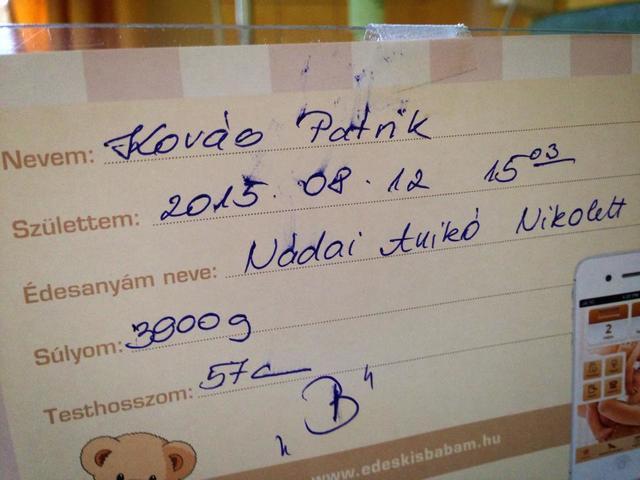 Nevem: Kovács Patrik
Születtem: 2015. 08. 12 15 03
Édesanyám neve: Nádai Anikó Nikolett
Súlyom: 3900 g
Testhosszom: 57 c
"B"
www.edeskisbabam.hu